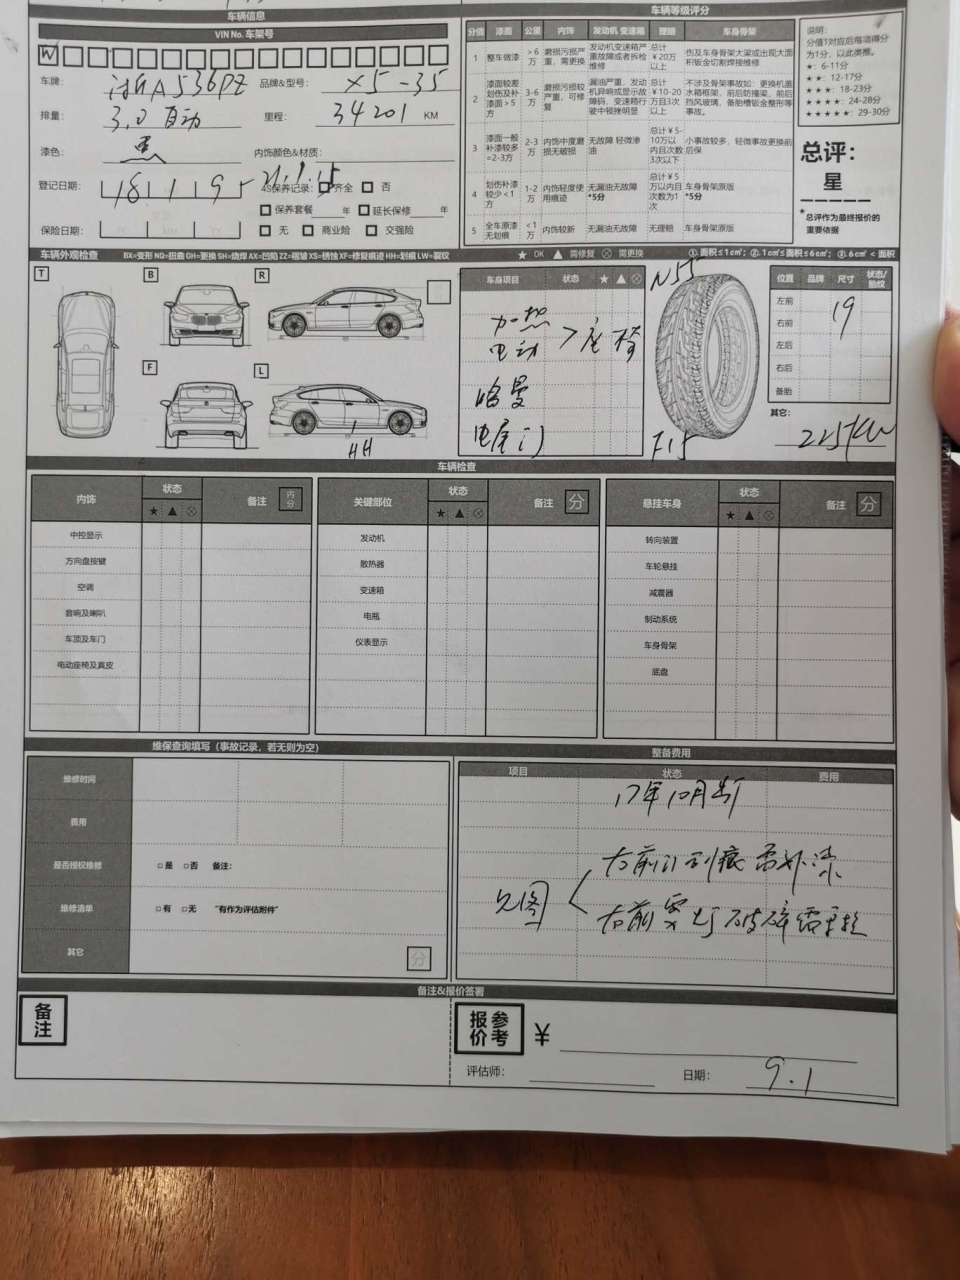 车辆信息
VIN No. 车架号
W
车牌: A536PZ 品牌&型号: X5-35
排量: 3.0 自动 里程: 34201 KM
漆色: 黑 内饰颜色&材质:
登记日期: 18 1 19 4S保养记录: 齐全 否
保养套餐 年 延长保修 年
保险日期: YY MM DD 无 商业险 交强险
车辆等级评分
分值 漆面 公里 内饰 发动机 变速箱 理赔 车身骨架
1 整车做漆 >6万 磨损污损严重，需更换 发动机变速箱严重故障或者拆检维修 总计¥20万以上 伤及车身骨架大梁或出现大面积钣金切割焊接维修
2 漆面较差划伤及补漆面>5 3-6万 磨损污损较严重，可修复 漏油严重，发动机异响或显示故障码，变速箱行驶中顿挫明显 总计¥10-20万且3次以上 不涉及骨架事故如：更换机盖水箱框架，前后防撞梁，前后挡风玻璃，备胎槽钣金整形等事故。
3 漆面一般补漆较多=2-3方 2-3万 内饰中度磨损无破损 无故障 轻微渗油 总计¥5-10万以内且次数3次以下 小事故较多，轻微事故更换前后保
4 划伤补漆较少<1方 1-2万 内饰轻度使用痕迹 无漏油无故障 *5分 总计¥5万以内且次数为1次 车身骨架原版 *5分
5 全车原漆无划痕 <1万 内饰较新 无漏油无故障 无理赔 车身骨架原版
说明:
分值1对应后每项得分为1分，以此类推。
★: 6-11分
★★: 12-17分
★★★: 18-23分
★★★★: 24-28分
★★★★★: 29-30分
总评:
星
*总评作为最终报价的重要依据
车辆外观检查 BX=变形 NQ=扭曲 GH=更换 SH=烧焊 AX=凹陷 ZZ=褶皱 XS=锈蚀 XF=修复痕迹 HH=划痕 LW=裂纹 ★ OK ▲ 需修复 ⊗ 需更换 ①. 面积≤1c㎡; ②. 1c㎡≤面积≤6c㎡; ③. 6c㎡<面积
T B R
F L
HH
车身项目 状态 ★ ▲ ⊗
加热
电动 > 座椅
哈曼
电尾门
N55
F15
位置 品牌 尺寸 状态/胎纹
左前
右前 19
左后
右后
备胎
其它:
225KW
车辆检查
内饰 状态 ★ ▲ ⊗ 备注 内分
中控显示
方向盘按键
空调
音响及喇叭
车顶及车门
电动座椅及真皮
关键部位 状态 ★ ▲ ⊗ 备注 分
发动机
散热器
变速箱
电瓶
仪表显示
悬挂车身 状态 ★ ▲ ⊗ 备注 分
转向装置
车轮悬挂
减震器
制动系统
车身骨架
底盘
维保查询填写（事故记录，若无则为空）
维修时间
费用
是否授权维修 □是 □否 备注:
维修清单 □有 □无 "有作为评估附件"
其它 分
整备费用
项目 状态 费用
17年10月出厂
右前门划痕需补漆
见图
右前雾灯破碎需更换
备注&报价签署
备注
参考报价 ¥
评估师: 日期: 9.1